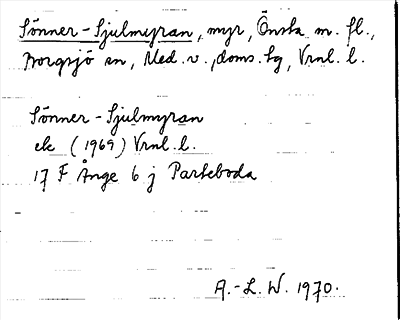 Sönner-Sjulmyran, myr, Önsta m. fl.,
Borgsjö sn, Med. v., doms. sg, Vrnl. l.
Sönner-Sjulmyran
ek (1969) Vrnl. l.
17 F Ånge 6 j Parteboda
A.-L. W. 1970.